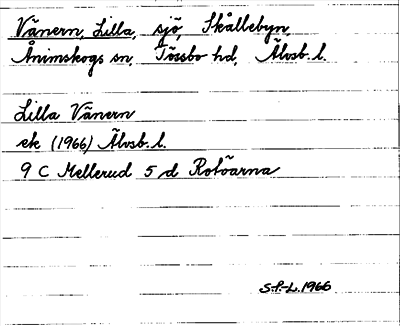 Vänern, Lilla, sjö, Skållebyn,
Ånimskogs sn, Tössbo hd, Älvsb. l.
Lilla Vänern
ek (1966) Älvsb. l.
9 C Mellerud 5 d Rotöarna
S.F-L. 1966